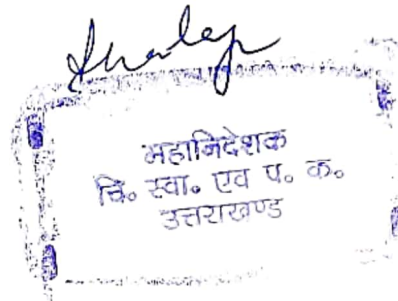 महानिदेशक
चि॰ स्वा॰ एव प॰ क॰
उत्तराखण्ड